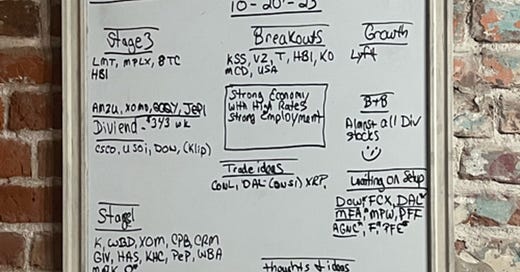 10-20-23
Stage 3
LMT, MPLX, BTC
HBI
ANZU, XOMO, JEPI
Diviend - $343 wk
CSCO, USOi, DOW, (Klip)
Stage1
K, WBD, XOM, CPB, CRM
GIV, HAS, KHC, PeP, WBA
Breakouts
KSS, VZ, T, HBI, KO
MCD, USA
Strong Economy
with High Rates
Strong Employment
Trade ideas
CONL, DAL XRP,
thoughts & ideas
Growth
Lyft
B+B
Almost all Div
stocks
Waiting on Setup
DOW* FCX, DAL*
MFA,* MPW, PFF
AGNC,* F* PFE*